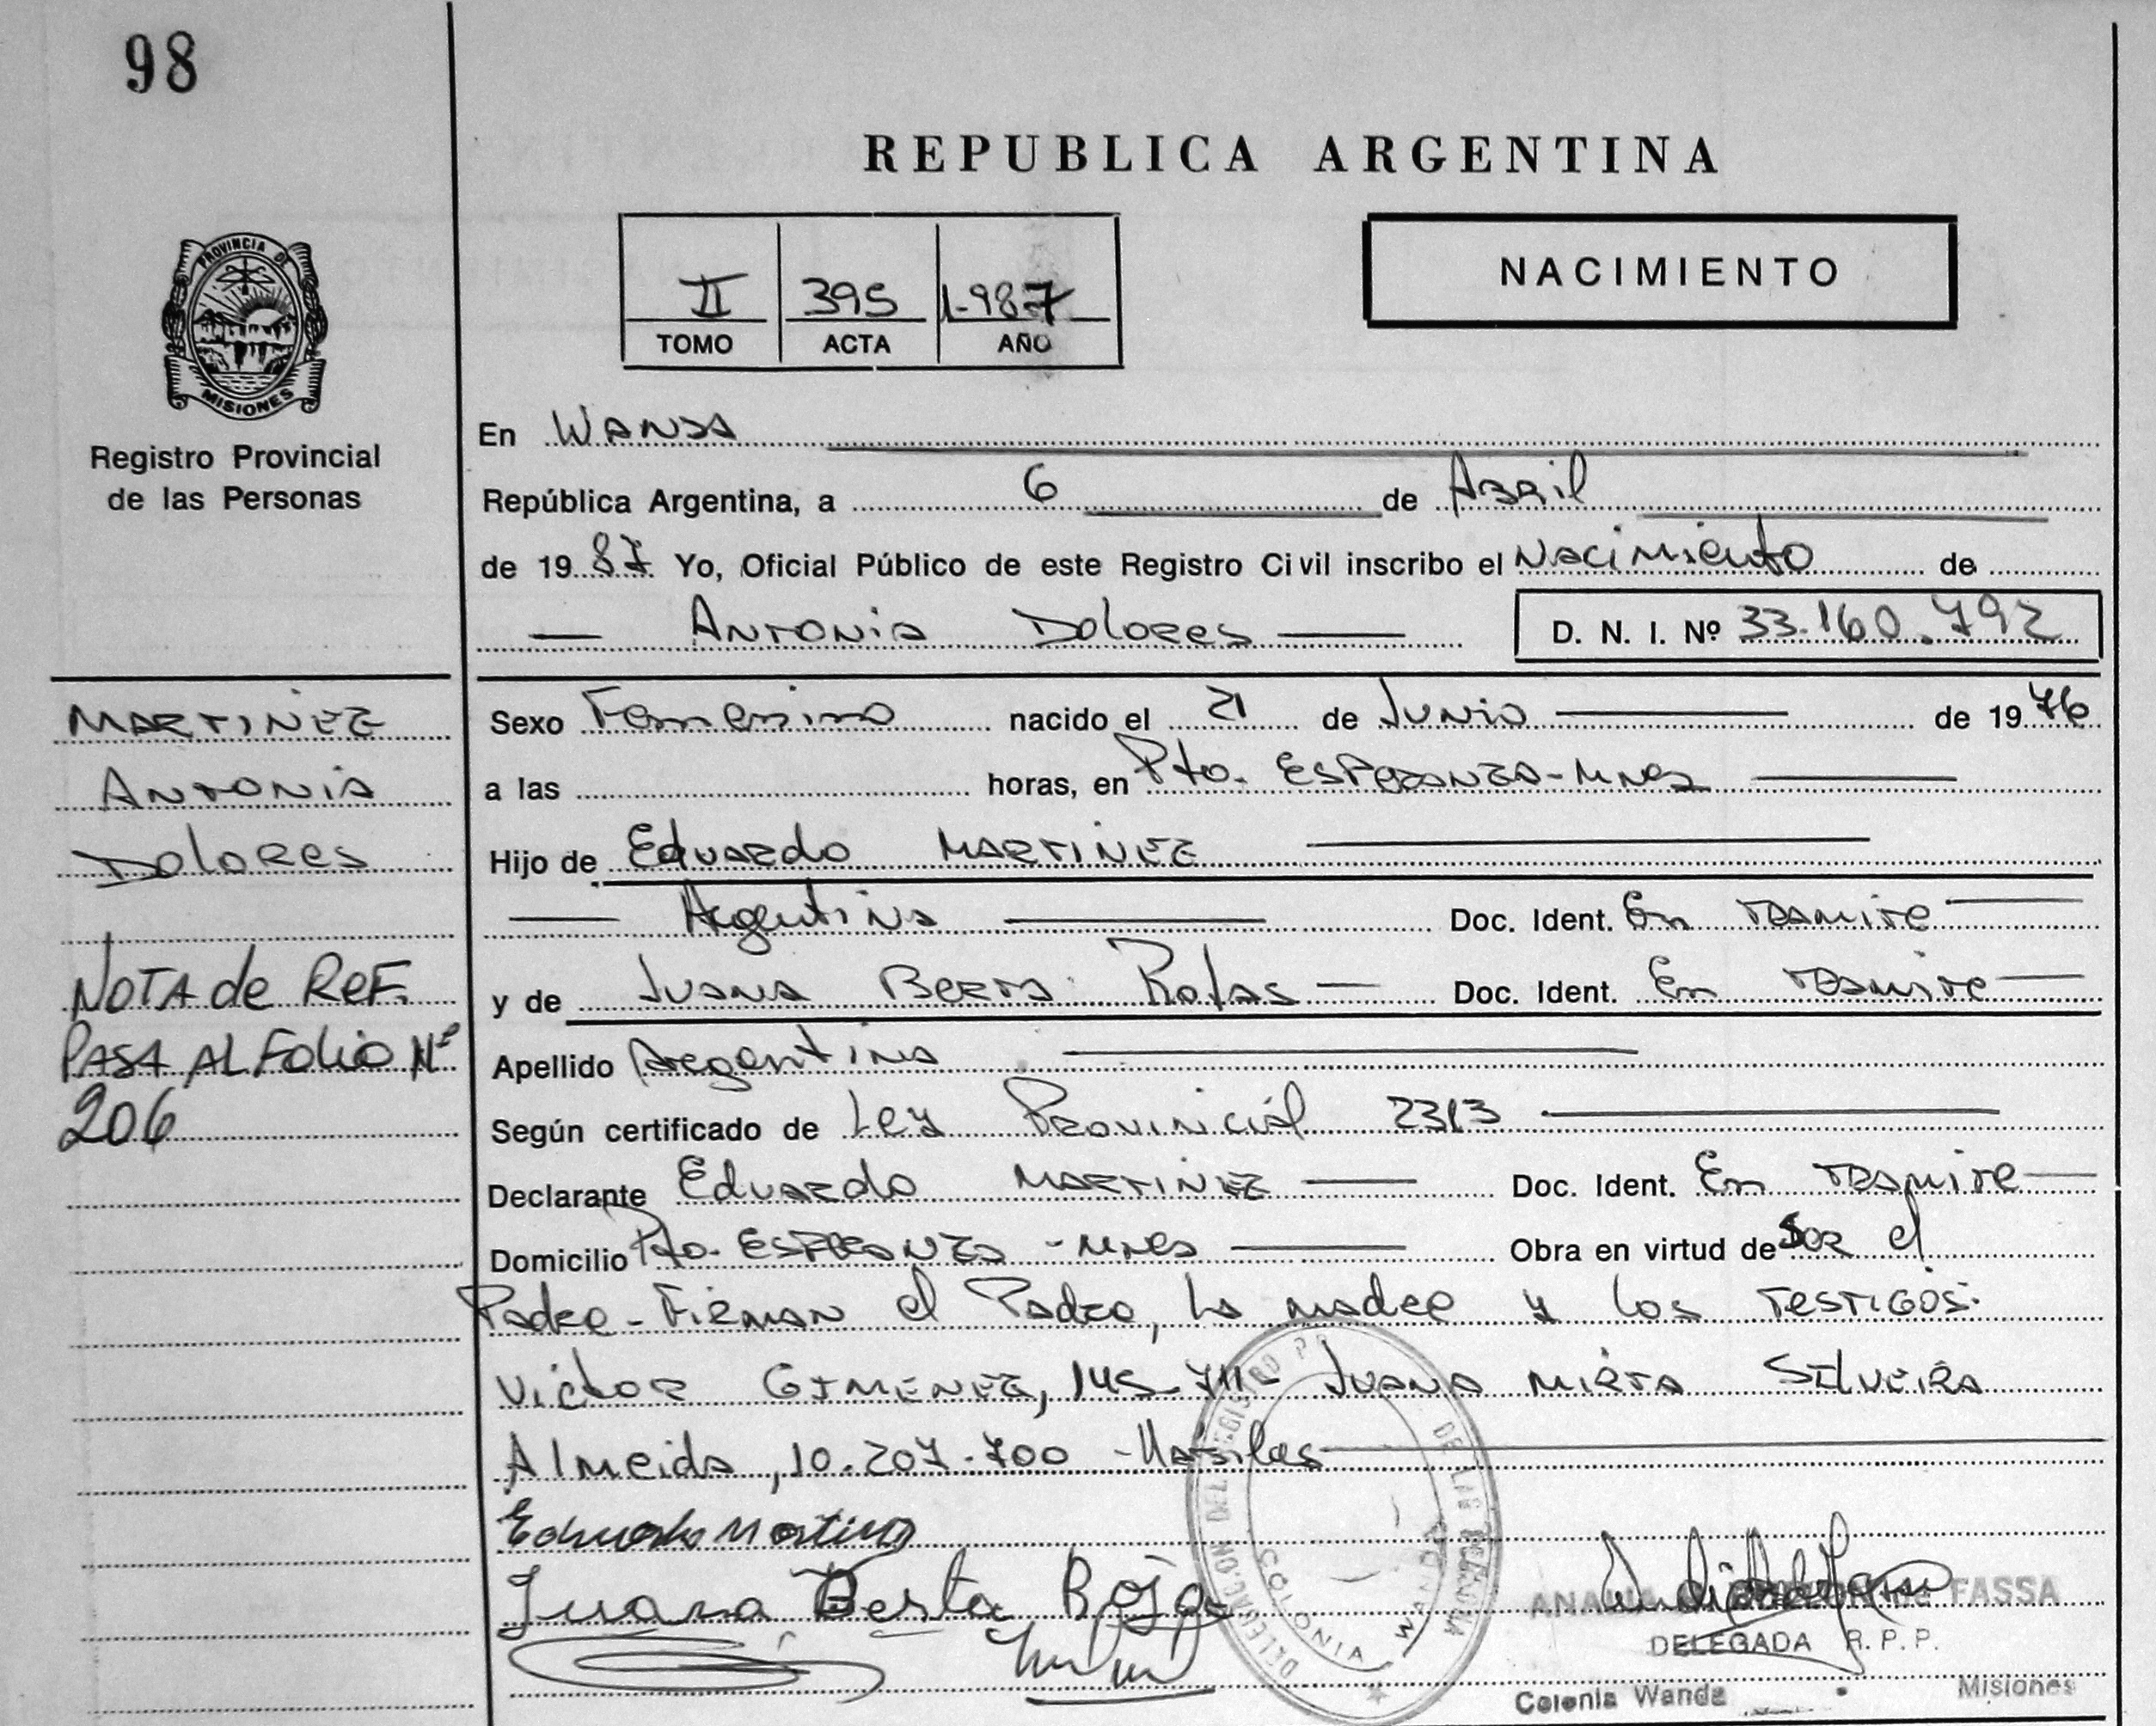 98
REPUBLICA ARGENTINA
II 395 1-987
TOMO ACTA AÑO
NACIMIENTO
PROVINCIA DE
MISIONES
Registro Provincial
de las Personas
En Wanda
República Argentina, a 6 de Abril
de 1987 Yo, Oficial Público de este Registro Civil inscribo el Nacimiento de
Antonia Dolores D. N. I. Nº 33.160.792
MARTINEZ
Antonia
Dolores
NOTA de ReF.
PASA AL Folio Nº
206
Sexo Femenino nacido el 21 de Junio de 1976
a las horas, en Pto. Esperanza-Mnes
Hijo de Eduardo MARTINEZ
Argentina Doc. Ident. En tramite
y de Juana Berta Rojas Doc. Ident. En tramite
Apellido Argentina
Según certificado de Ley Provincial 2313
Declarante Eduardo MARTINEZ Doc. Ident. En tramite
Domicilio Pto. Esperanza -Mnes Obra en virtud de Ser el
Padre - Firman el Padre, la madre y los testigos:
Victor GIMENEZ, Juana Mirta Silveira
Almeida, 10.207.700
Eduardo Martinez
Juana Berta Rojas
DELEGACION DEL REGISTRO DE LAS
COLONIA WANDA
FASSA
DELEGADA R. P. P.
Colonia Wanda Misiones